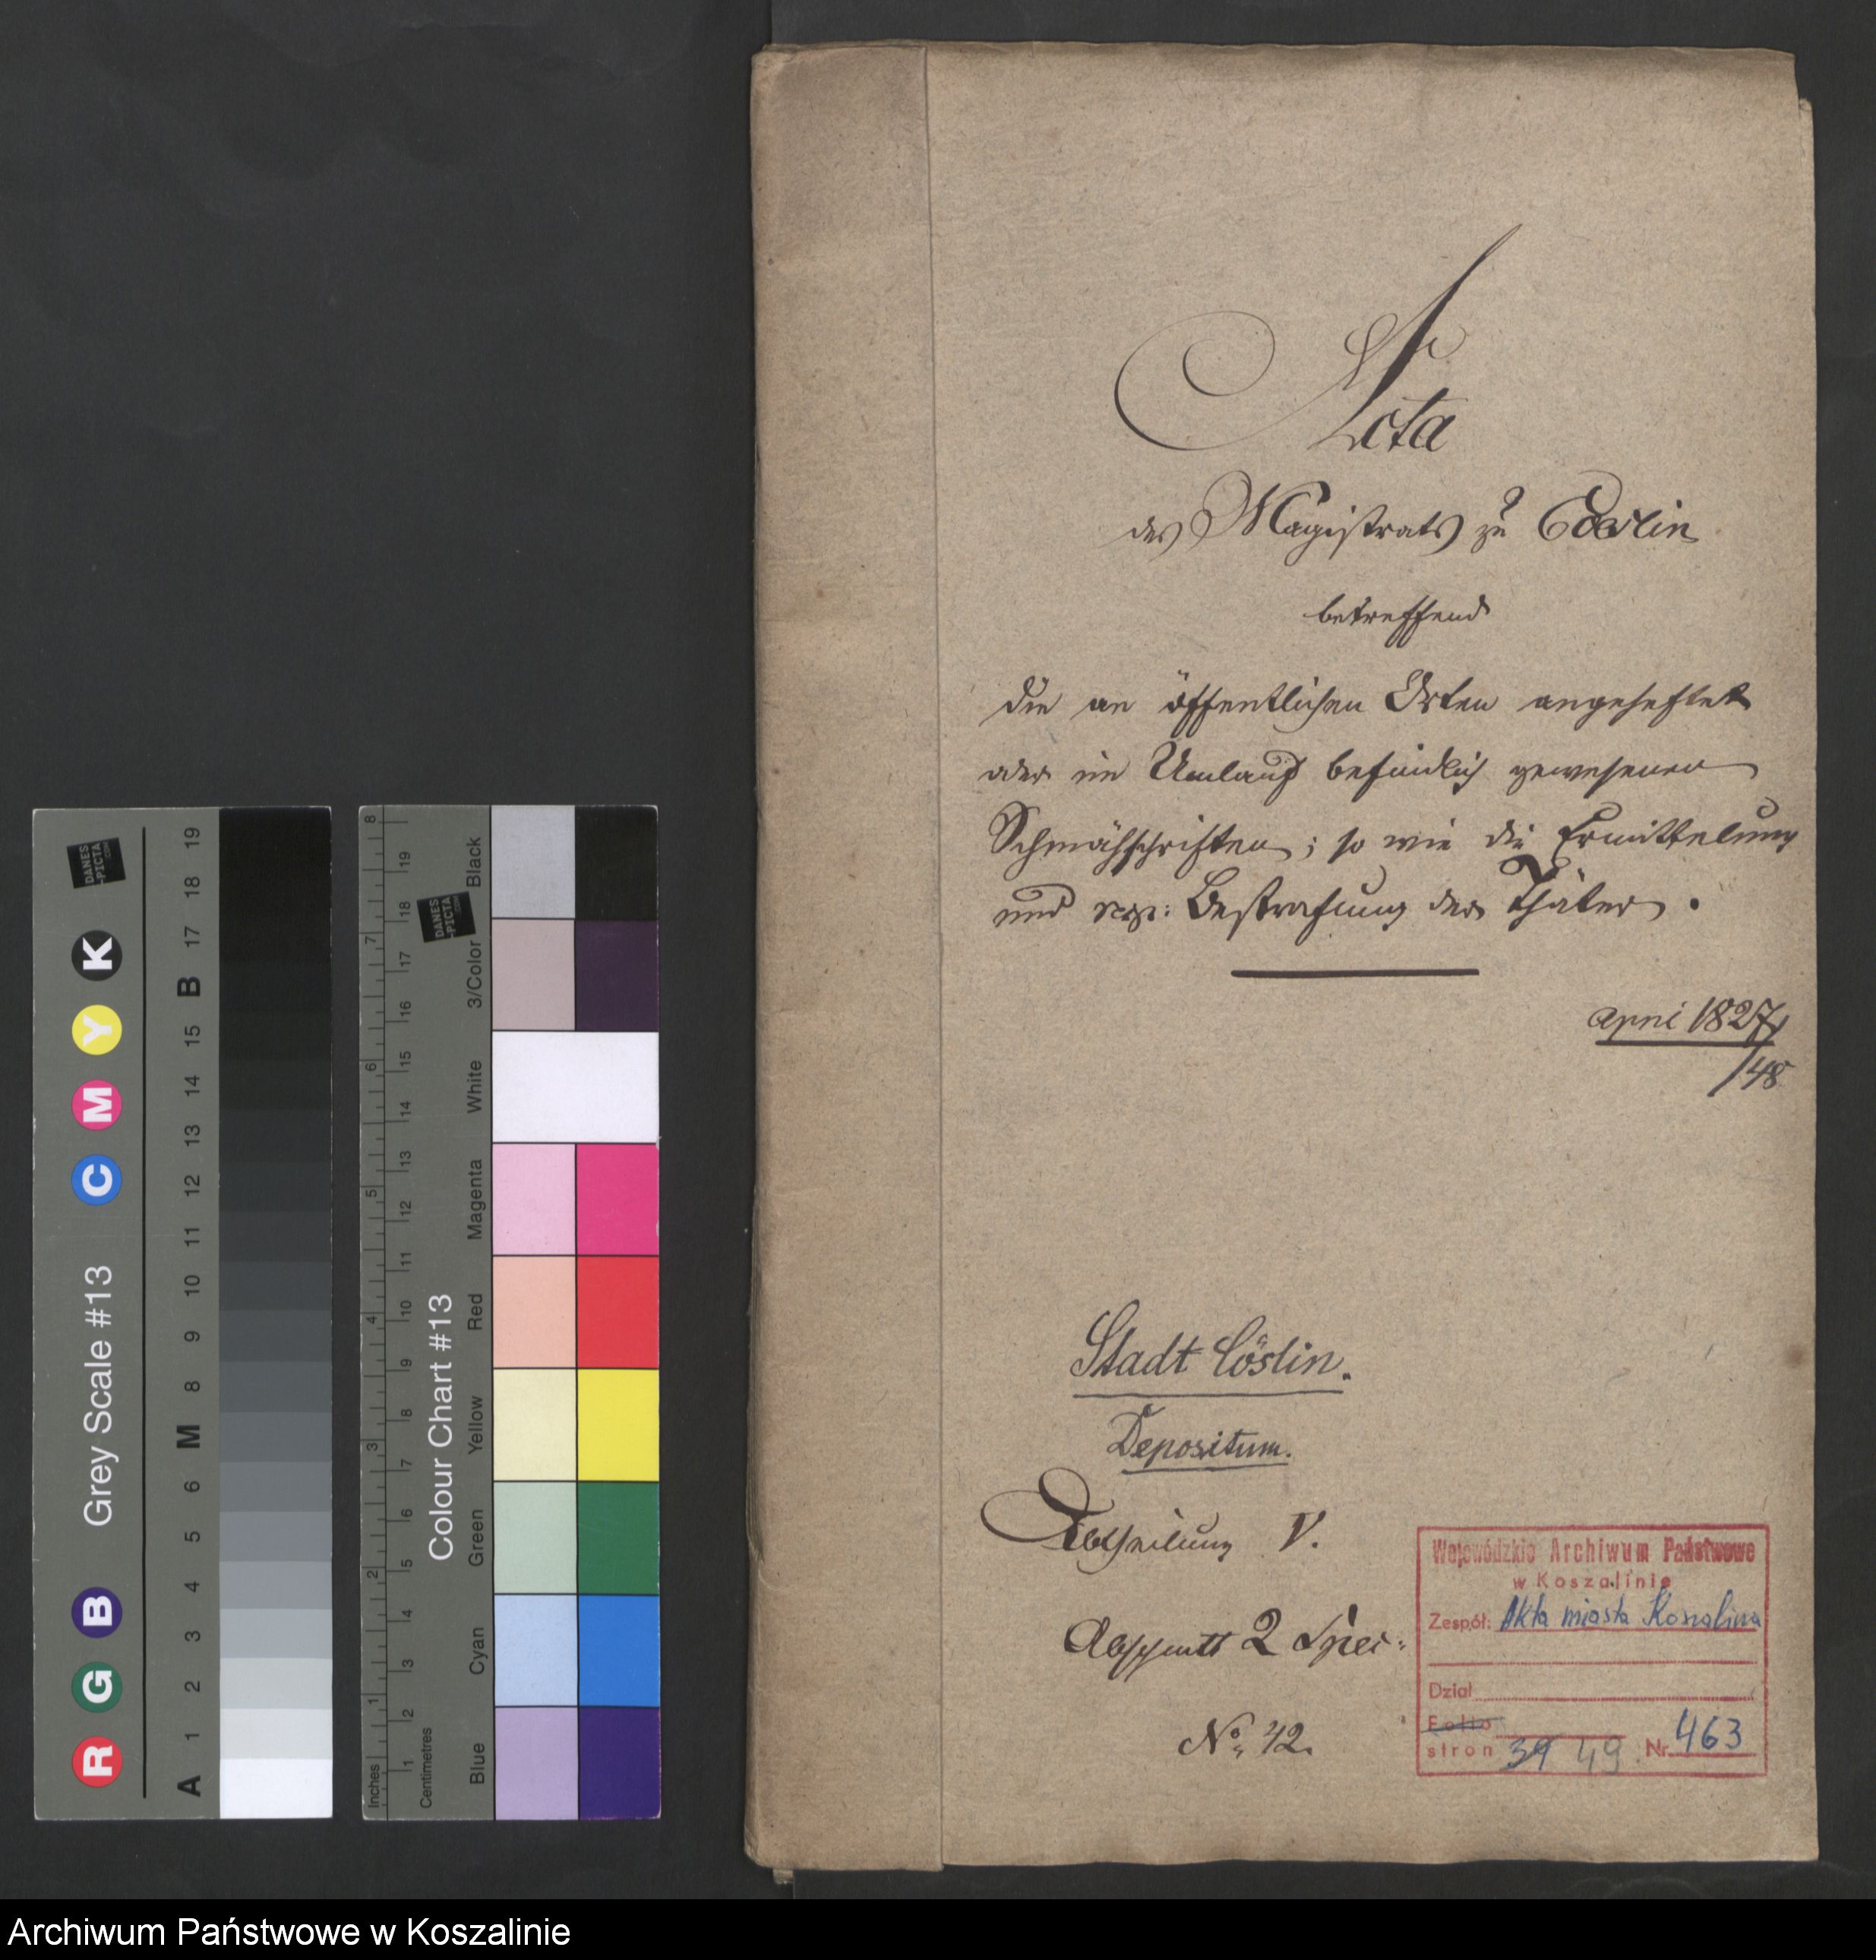 Acta
des Magistrats zu Coeslin
betreffend
die an öffentlichen Orten angeheftet
oder im Umlauf befindlich gewesenen
Schmähschriften; so wie die Ermittelung
und resp: Bestrafung der Thäter.
1827/
/48
Stadt Cöslin.
Depositum.
Abtheilung V.
Abschnitt 2 Spec:
No: 42.
Wojewódzkie Archiwum Państwowe
w Koszalinie
Zespół: Akta miasta Koszalina
Dział
Folio
stron 39 49. Nr. 463
Grey Scale #13
R G B C M Y K
A 1 2 3 4 5 6 M 8 9 10 11 12 13 14 15 B 17 18 19
DANES
-PICTA
.COM
Colour Chart #13
Inches 1 2 3 4 5 6 7 8
Centimetres 1 2 3 4 5 6 7 8 9 10 11 12 13 14 15 16 17 18 19
DANES
-PICTA
.COM
Blue Cyan Green Yellow Red Magenta White 3/Color Black
Archiwum Państwowe w Koszalinie